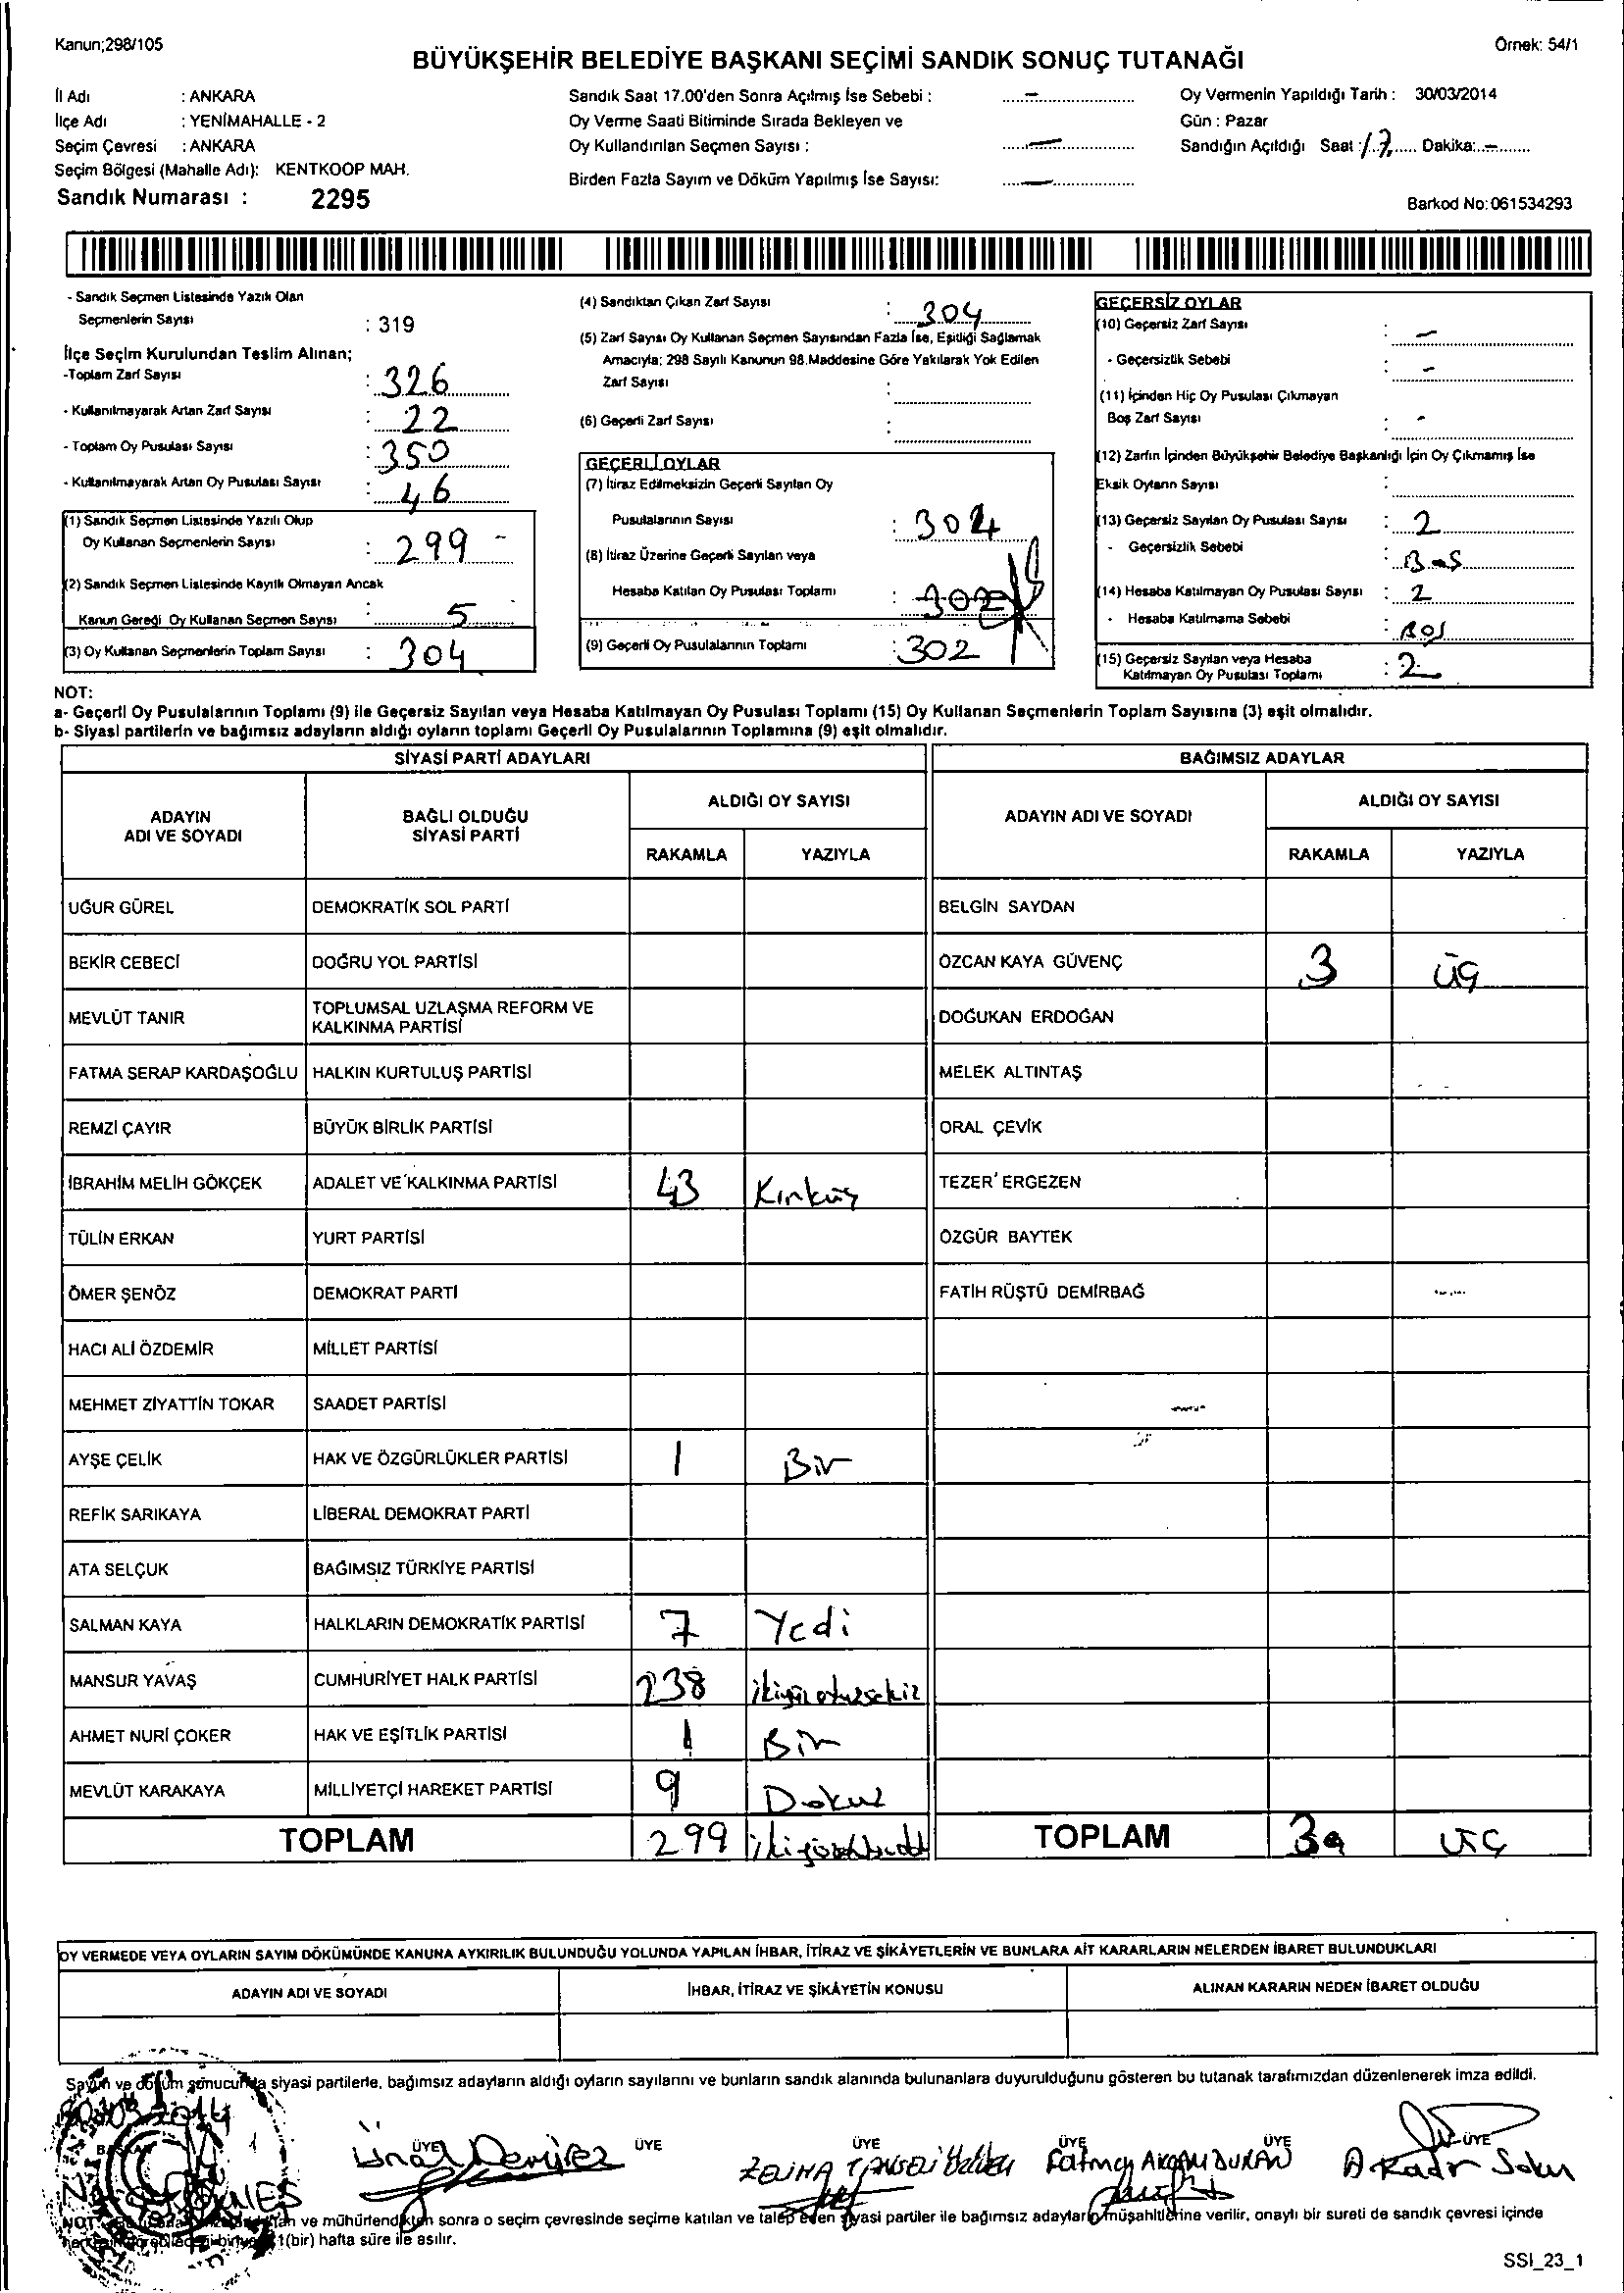 Kanun;298/105
Örnek: 54/1
BÜYÜKŞEHİR BELEDİYE BAŞKANI SEÇİMİ SANDIK SONUÇ TUTANAĞI
İl Adı : ANKARA
İlçe Adı : YENİMAHALLE - 2
Seçim Çevresi : ANKARA
Seçim Bölgesi (Mahalle Adı): KENTKOOP MAH.
Sandık Numarası : 2295
Sandık Saat 17.00'den Sonra Açılmış İse Sebebi : –
Oy Verme Saati Bitiminde Sırada Bekleyen ve
Oy Kullandırılan Seçmen Sayısı : –
Birden Fazla Sayım ve Döküm Yapılmış İse Sayısı: –
Oy Vermenin Yapıldığı Tarih : 30/03/2014
Gün : Pazar
Sandığın Açıldığı Saat : 17 Dakika: –
Barkod No:061534293
- Sandık Seçmen Listesinde Yazılı Olan
Seçmenlerin Sayısı : 319
İlçe Seçim Kurulundan Teslim Alınan;
-Toplam Zarf Sayısı : 326
- Kullanılmayarak Artan Zarf Sayısı : 22
- Toplam Oy Pusulası Sayısı : 350
- Kullanılmayarak Artan Oy Pusulası Sayısı : 46
(1) Sandık Seçmen Listesinde Yazılı Olup
Oy Kullanan Seçmenlerin Sayısı : 299 -
(2) Sandık Seçmen Listesinde Kayıtlı Olmayan Ancak
Kanun Gereği Oy Kullanan Seçmen Sayısı : 5
(3) Oy Kullanan Seçmenlerin Toplam Sayısı : 304
(4) Sandıktan Çıkan Zarf Sayısı : 304
(5) Zarf Sayısı Oy Kullanan Seçmen Sayısından Fazla İse, Eşitliği Sağlamak
Amacıyla; 298 Sayılı Kanunun 98.Maddesine Göre Yakılarak Yok Edilen
Zarf Sayısı :
(6) Geçerli Zarf Sayısı :
GEÇERLİ OYLAR
(7) İtiraz Edilmeksizin Geçerli Sayılan Oy
Pusulalarının Sayısı : 302
(8) İtiraz Üzerine Geçerli Sayılan veya
Hesaba Katılan Oy Pusulası Toplamı : 302
(9) Geçerli Oy Pusulalarının Toplamı : 302
GEÇERSİZ OYLAR
(10) Geçersiz Zarf Sayısı : –
- Geçersizlik Sebebi : –
(11) İçinden Hiç Oy Pusulası Çıkmayan
Boş Zarf Sayısı : -
(12) Zarfın İçinden Büyükşehir Belediye Başkanlığı İçin Oy Çıkmamış İse
Eksik Oyların Sayısı :
(13) Geçersiz Sayılan Oy Pusulası Sayısı : 2
- Geçersizlik Sebebi : Boş
(14) Hesaba Katılmayan Oy Pusulası Sayısı : 2
- Hesaba Katılmama Sebebi : Boş
(15) Geçersiz Sayılan veya Hesaba
Katılmayan Oy Pusulası Toplamı : 2
NOT:
a- Geçerli Oy Pusulalarının Toplamı (9) ile Geçersiz Sayılan veya Hesaba Katılmayan Oy Pusulası Toplamı (15) Oy Kullanan Seçmenlerin Toplam Sayısına (3) eşit olmalıdır.
b- Siyasi partilerin ve bağımsız adayların aldığı oyların toplamı Geçerli Oy Pusulalarının Toplamına (9) eşit olmalıdır.
SİYASİ PARTİ ADAYLARI BAĞIMSIZ ADAYLAR
ADAYIN
ADI VE SOYADI
BAĞLI OLDUĞU
SİYASİ PARTİ
ALDIĞI OY SAYISI
RAKAMLA YAZIYLA
ADAYIN ADI VE SOYADI
ALDIĞI OY SAYISI
RAKAMLA YAZIYLA
UĞUR GÜREL DEMOKRATİK SOL PARTİ BELGİN SAYDAN
BEKİR CEBECİ DOĞRU YOL PARTİSİ ÖZCAN KAYA GÜVENÇ 3 ÜÇ
MEVLÜT TANIR TOPLUMSAL UZLAŞMA REFORM VE
KALKINMA PARTİSİ DOĞUKAN ERDOĞAN
FATMA SERAP KARDAŞOĞLU HALKIN KURTULUŞ PARTİSİ MELEK ALTINTAŞ
REMZİ ÇAYIR BÜYÜK BİRLİK PARTİSİ ORAL ÇEVİK
İBRAHİM MELİH GÖKÇEK ADALET VE KALKINMA PARTİSİ 43 Kırküç TEZER ERGEZEN
TÜLİN ERKAN YURT PARTİSİ ÖZGÜR BAYTEK
ÖMER ŞENÖZ DEMOKRAT PARTİ FATİH RÜŞTÜ DEMİRBAĞ
HACI ALİ ÖZDEMİR MİLLET PARTİSİ
MEHMET ZİYATTİN TOKAR SAADET PARTİSİ
AYŞE ÇELİK HAK VE ÖZGÜRLÜKLER PARTİSİ 1 Bir
REFİK SARIKAYA LİBERAL DEMOKRAT PARTİ
ATA SELÇUK BAĞIMSIZ TÜRKİYE PARTİSİ
SALMAN KAYA HALKLARIN DEMOKRATİK PARTİSİ 7 Yedi
MANSUR YAVAŞ CUMHURİYET HALK PARTİSİ 238 ikiyüzotuzsekiz
AHMET NURİ ÇOKER HAK VE EŞİTLİK PARTİSİ 1 Bir
MEVLÜT KARAKAYA MİLLİYETÇİ HAREKET PARTİSİ 9 Dokuz
TOPLAM 299 TOPLAM 3 ÜÇ
OY VERMEDE VEYA OYLARIN SAYIM DÖKÜMÜNDE KANUNA AYKIRILIK BULUNDUĞU YOLUNDA YAPILAN İHBAR, İTİRAZ VE ŞİKÂYETLERİN VE BUNLARA AİT KARARLARIN NELERDEN İBARET BULUNDUKLARI
ADAYIN ADI VE SOYADI İHBAR, İTİRAZ VE ŞİKÂYETİN KONUSU ALINAN KARARIN NEDEN İBARET OLDUĞU
Sayım ve döküm sonucunda siyasi partilerle, bağımsız adayların aldığı oyların sayılarını ve bunların sandık alanında bulunanlara duyurulduğunu gösteren bu tutanak tarafımızdan düzenlenerek imza edildi.
BAŞKAN ÜYE ÜYE ÜYE ÜYE ÜYE ÜYE
Fatma AKÇAY DURAN
NOT: ve mühürlendikten sonra o seçim çevresinde seçime katılan ve talep eden siyasi partiler ile bağımsız adayların müşahitlerine verilir, onaylı bir sureti de sandık çevresi içinde
1(bir) hafta süre ile asılır.
SSI_23_1